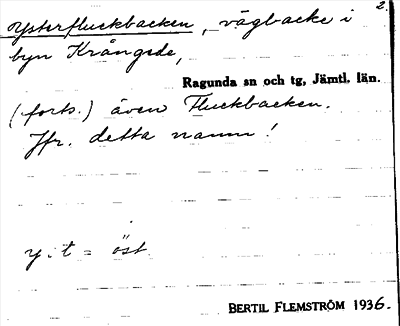 2.
Ysterfluckbacken, vägbacke i
byn Krångede,
Ragunda sn och tg, Jämtl. län.
(forts.) även Fluckbacken.
Jfr. detta namn!
y:t = öst
BERTIL FLEMSTRÖM 1936.